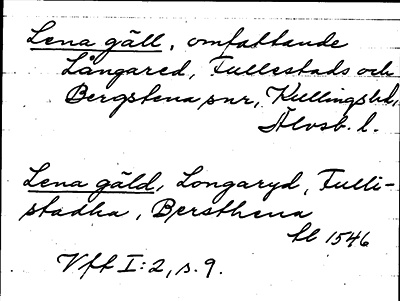 Lena gäll, omfattande
Långared, Tullestads och
Bergstena snr, Kullingshd,
Älvsb. l.
Lena gäld, Longaryd, Tulli-
stadha, Bersthena
1546
Vfft I:2, s. 9.